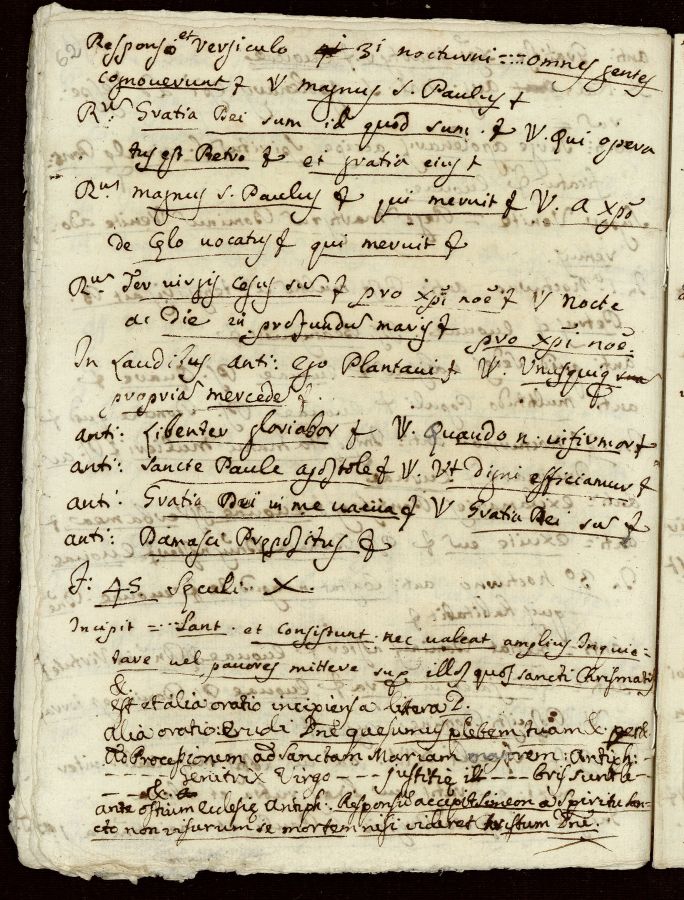 Responso et versiculo 3i nocturni ---- omnes gentes
cognoverunt & V magnus S. Paulus &
Rus Gratia Dei sum id quod sum & V. Qui opera
tus est Petro & et gratia eius &
Rus magnus S. Paulus & qui meruit & V. a xpo
de Celo vocatus & qui meruit &
Rus Ter virgis cesus su & pro xpi noe & V Nocte
ac Die in profundus maris & pro xpi noe.
In Laudibus anti: Ego Plantavi & V. Unusquisq
propria mercede &.
anti: Libenter gloriabor & V. Quando n. infirmor &
anti: Sancte Paule apostole & V. Ut digni efficiamur &
anti: Gratia Dei in me vacua & V Gratia Dei su &
anti: Damasci Prepositus &
F: 45 Seculi X.
Incipit --- Sant et consistunt nec valeat amplius Inquie-
tare vel pavores mittere sup illos quos sancti Chrismatis
&.
est et alia oratio incipiens a litera
alia oratio: Erudi Dne quesumus plebem tuam &.
Ad Processionem ad Sanctam Mariam majorem: Antiph:
- - - - Genitrix Virgo - - - Justitie - - - bris sunt a-
- - - &.
ante ostium Ecclesie Antiph. Responsu accepit Simeon a Spiritu San-
cto non visurum se mortem nisi videret Christum Dni.